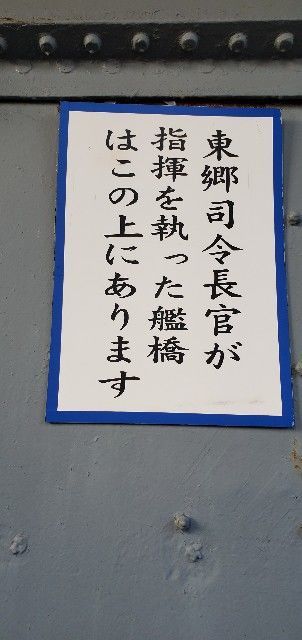 東郷司令長官が
指揮を執った艦橋
はこの上にあります